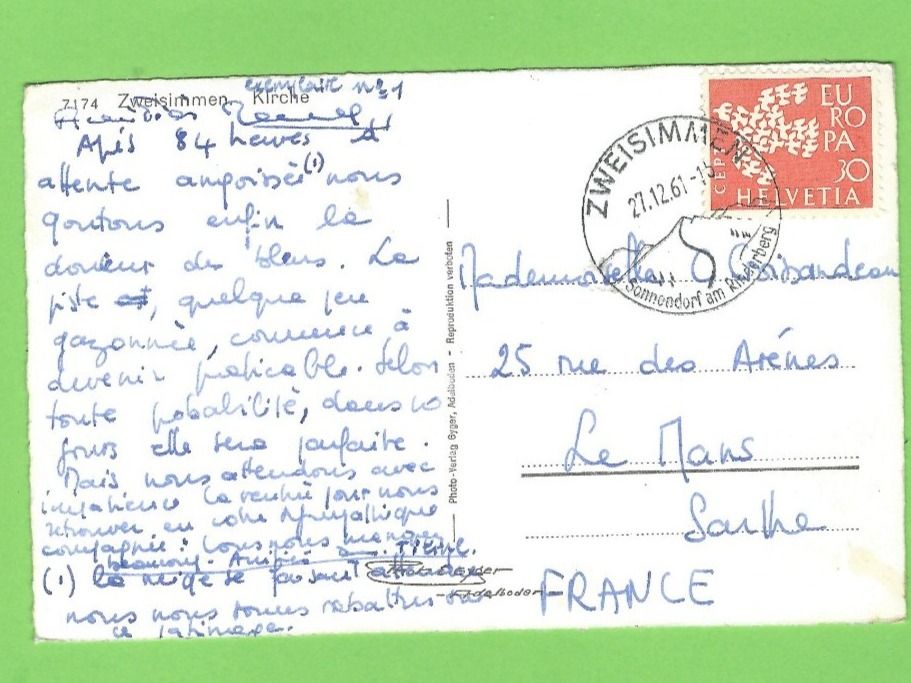 exemplaire nº 1
7174 Zweisimmen, Kirche
Après 84 heures d'
attente angoissée (1) nous
goutons enfin la
douceur des blens. La
piste, quelque peu
gazonnée, commence à
devenir praticable. Selon
toute probabilité, dans 10
jours elle sera parfaite.
Mais nous attendons avec
impatience la rentrée pour nous
retrouver en votre sympathique
compagnie : vous nous manquez
beaucoup. Amitiés Pierre.
(1) la neige se faisant attendre
nous nous sommes rabattus sur
le patinage.
Photo-Verlag Gyger, Adelboden - Reproduktion verboten
Photo Gyger
Adelboden
EU
RO
PA
30
CEPT
HELVETIA
ZWEISIMMEN
27.12.61-15
Sonnendorf am Rinderberg
Mademoiselle
25 rue des Arènes
Le Mans
Sarthe
FRANCE